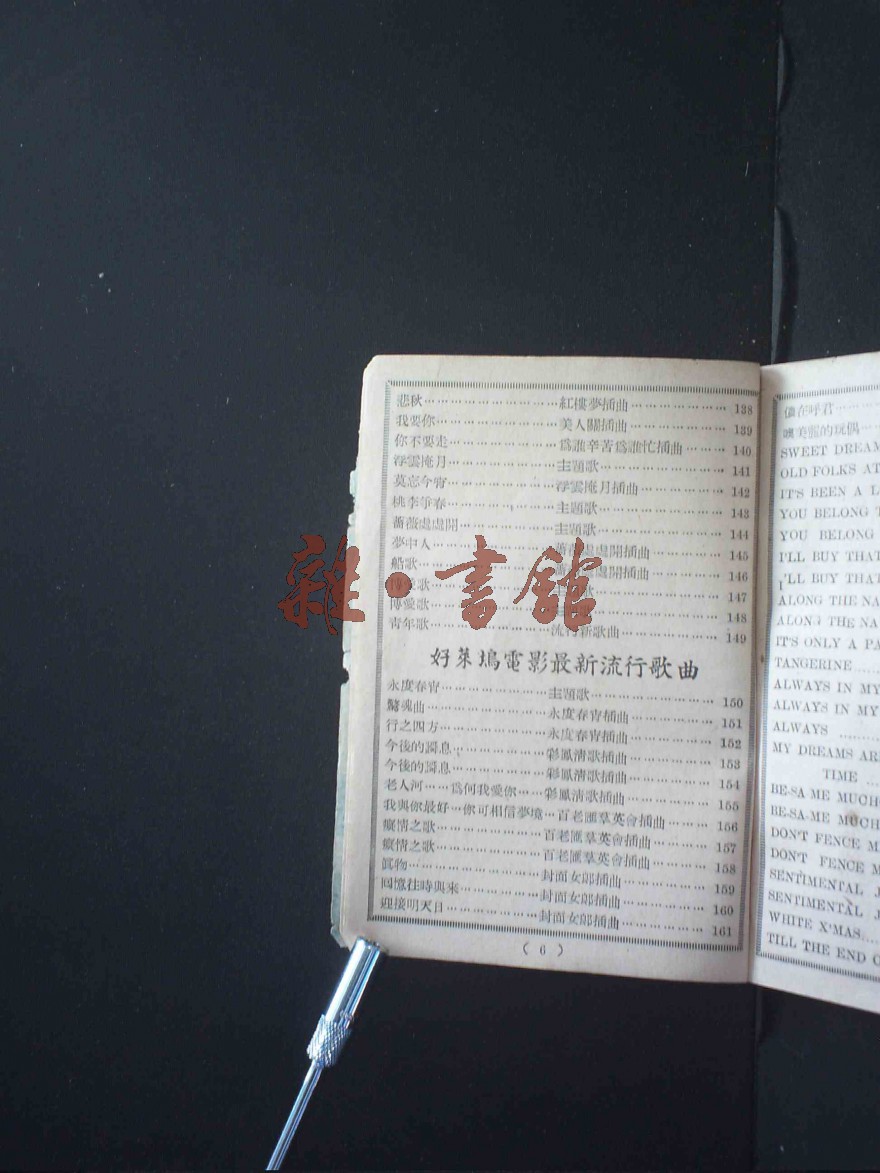 悲秋…紅樓夢插曲…138
我要你…美人關插曲…139
你不要走…為誰辛苦為誰忙插曲…140
浮雲掩月…主題歌…141
莫忘今宵…浮雲掩月插曲…142
桃李爭春…主題歌…143
薔薇處處開…主題歌…144
夢中人…薔薇處處開插曲…145
船歌…處開插曲…146
博愛歌…歌…147
博愛歌…148
青年歌…流行新歌曲…149
好萊塢電影最新流行歌曲
永度春宵…主題歌…150
驚魂曲…永度春宵插曲…151
行之四方…永度春宵插曲…152
今後的調息…彩鳳清歌插曲…153
今後的調息…彩鳳清歌插曲…154
老人河…為何我愛你…彩鳳清歌插曲…155
我與你最好…你可相信夢境…百老匯羣英會插曲…156
癡情之歌…百老匯羣英會插曲…157
癡情之歌…百老匯羣英會插曲…158
眞物…封面女郎插曲…159
回憶往時與來…封面女郎插曲…160
迎接明天日…封面女郎插曲…161
( 6 )
儂在呼君
噢美麗的玩偶
SWEET DREAM
OLD FOLKS AT
IT'S BEEN A L
YOU BELONG T
YOU BELONG
I'LL BUY THAT
I'LL BUY THAT
ALONG THE NA
ALONG THE NA
IT'S ONLY A PA
TANGERINE
ALWAYS IN MY
ALWAYS IN MY
ALWAYS
MY DREAMS ARE
TIME
BE-SA ME MUCHO
BE-SA-ME MUCH
DON'T FENCE M
DONT FENCE M
SENTIMENTAL J
SENTIMENTAL J
WHITE X'MAS
TILL THE END O
雜·書館